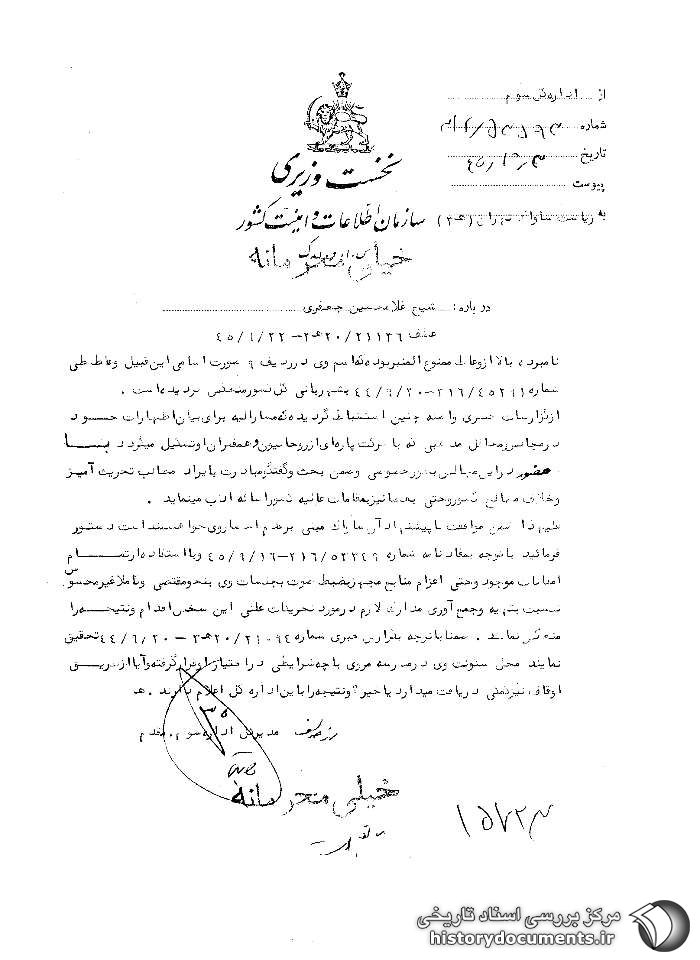 از اداره کل سوم
شماره
تاریخ ۴۵/۶/۳
پیوست
نخست وزیری
سازمان اطلاعات و امنیت کشور
به ریاست ساواک تهران (ه ۲)
خیلی محرمانه
درباره: شیخ غلامحسین جعفری
عطف ۲۰/۲۱۱۲۶ه‍۲–۴۵/۶/۲۲
نامبرده بالا از وعاظ ممنوع المنبر بوده که اسم وی در ردیف ۹ صورت اسامی این قبیل وعاظ طی
شماره ۳۱۶/۴۵۲۹۱–۴۴/۹/۲۰ بشهربانی کل کشور منعکس گردیده است.
از گزارشات خبری واصله چنین استنباط گردیده که مشارالیه برای بیان اظهارات خود
در مجالس و محافل مذهبی که با شرکت پاره‌ای از روحانیون و همفکران او تشکیل میگردد بنا
حضور در این مجالس بطور خصوصی وضمن بحث وگفتگو مبادرت بایراد مطالب تحریک آمیز
وخلاف مصالح کشور وحتی بعضا نیز بمقامات عالیه کشور اسائه ادب مینماید.
علیهذا ضمن موافقت با پیشنهاد آن ساواک مبنی بر خواهشمند است دستور
فرمائید با توجه بمفاد نامه شماره ۳۱۶/۵۲۲۴۹–۴۵/۶/۱۶ وبا استفاده از تمام
امکانات موجود وحتی اعزام منابع مجهز بضبط صوت بجلسات وی بنحو مقتضی وکاملا غیرمحسوس
نسبت بتهیه وجمع آوری مدارک لازم در مورد تحریکات علنی این شخص اقدام ونتیجه را
منعکس نمایند. ضمنا با توجه بگزارش خبری شماره ۲۰/۲۱۰۹۴ه‍۲–۴۴/۶/۲۰ تحقیق
نمایند محل سکونت وی در مدرسه مروی با چه شرایطی در اختیار او قرار گرفته وآیا از طریق
اوقاف نیز کمکی دریافت میدارد یا خیر؟ ونتیجه را باین اداره کل اعلام دارند. ه‍
مدیرکل اداره سوم. مقدم
خیلی محرمانه
۱۵۷۲۳
مرکز بررسی اسناد تاریخی
historydocuments.ir